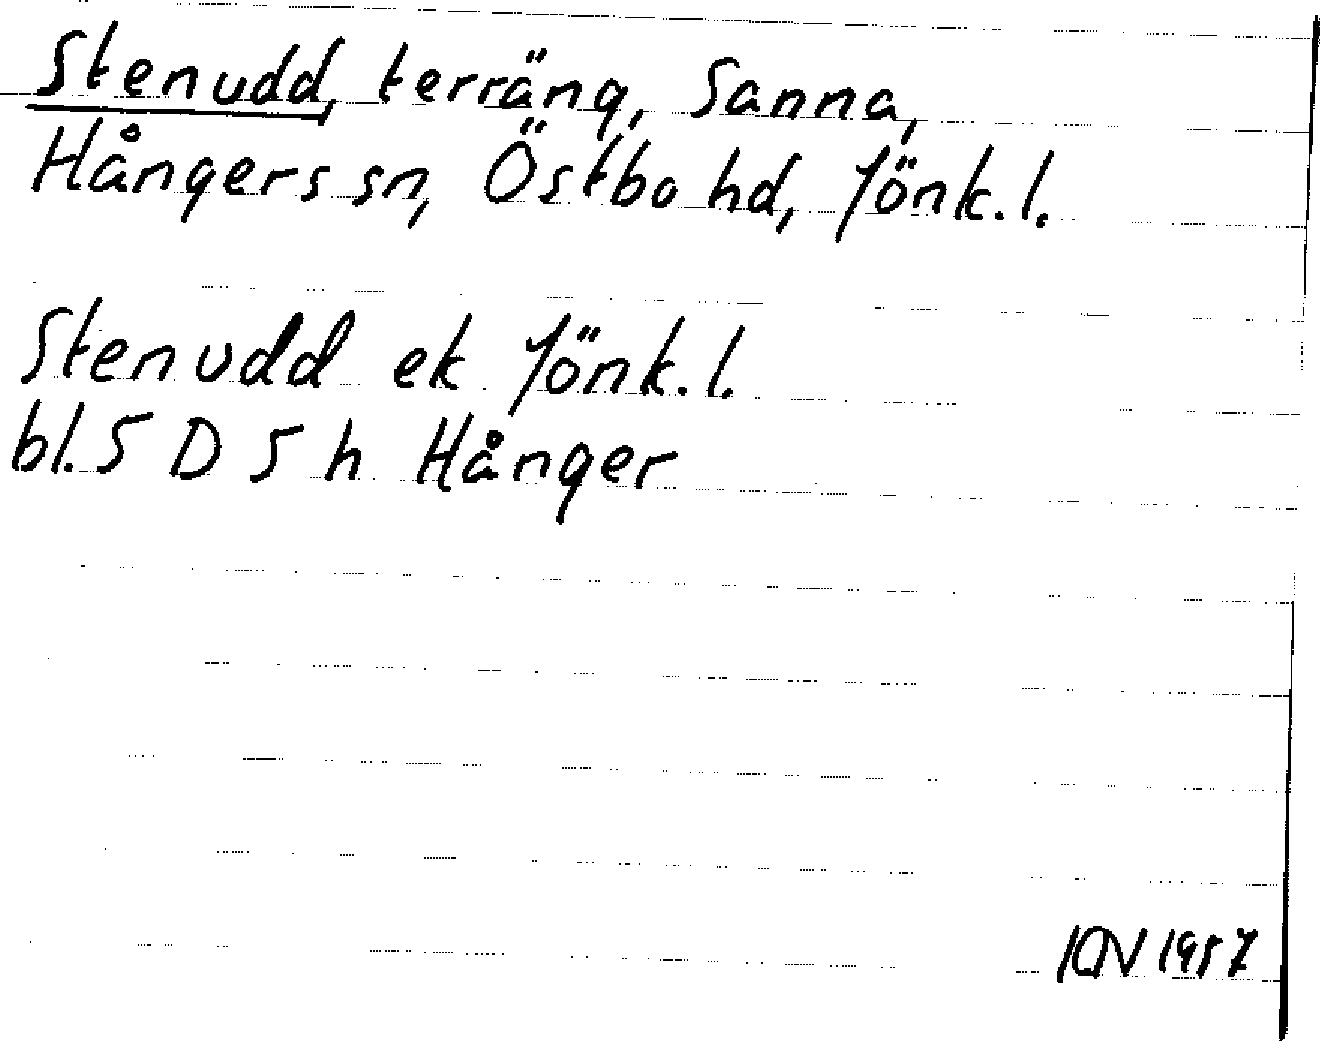 Stenudd, terräng, Sanna,
Hångers sn, Östbo hd, Jönk.l.
Stenudd ek Jönk.l.
bl. 5 D 5 h Hånger
1957